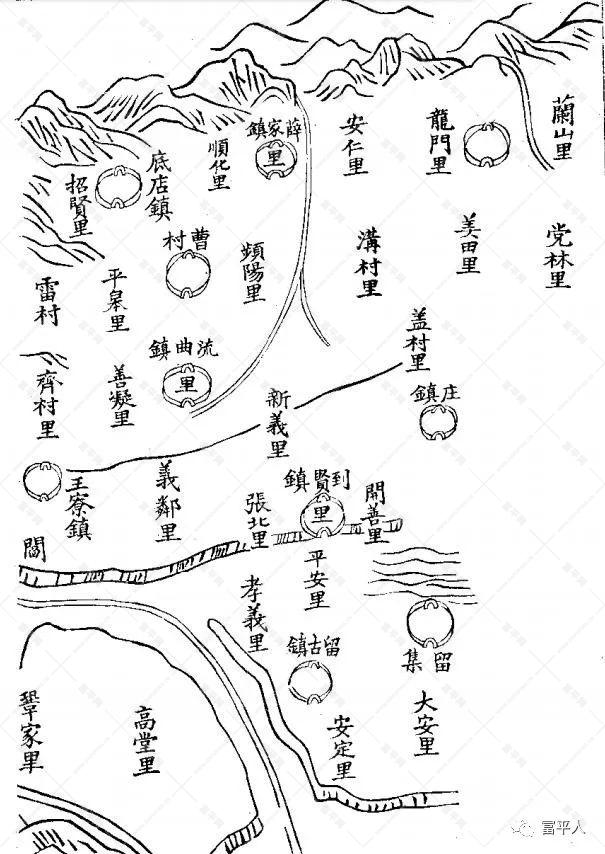 蘭山里
龍門里
安仁里
薛家鎮
里
順化里
底店鎮
招賢里
党林里
美田里
溝村里
頻陽里
曹村
平皋里
雷村
盖村里
流曲鎮
里
善凝里
齊村里
庄鎮
新義里
義鄰里
王寮鎮
開善里
到賢鎮
里
張北里
閻
平安里
孝義里
留集
留古鎮
大安里
安定里
高堂里
鞏家里
富平人